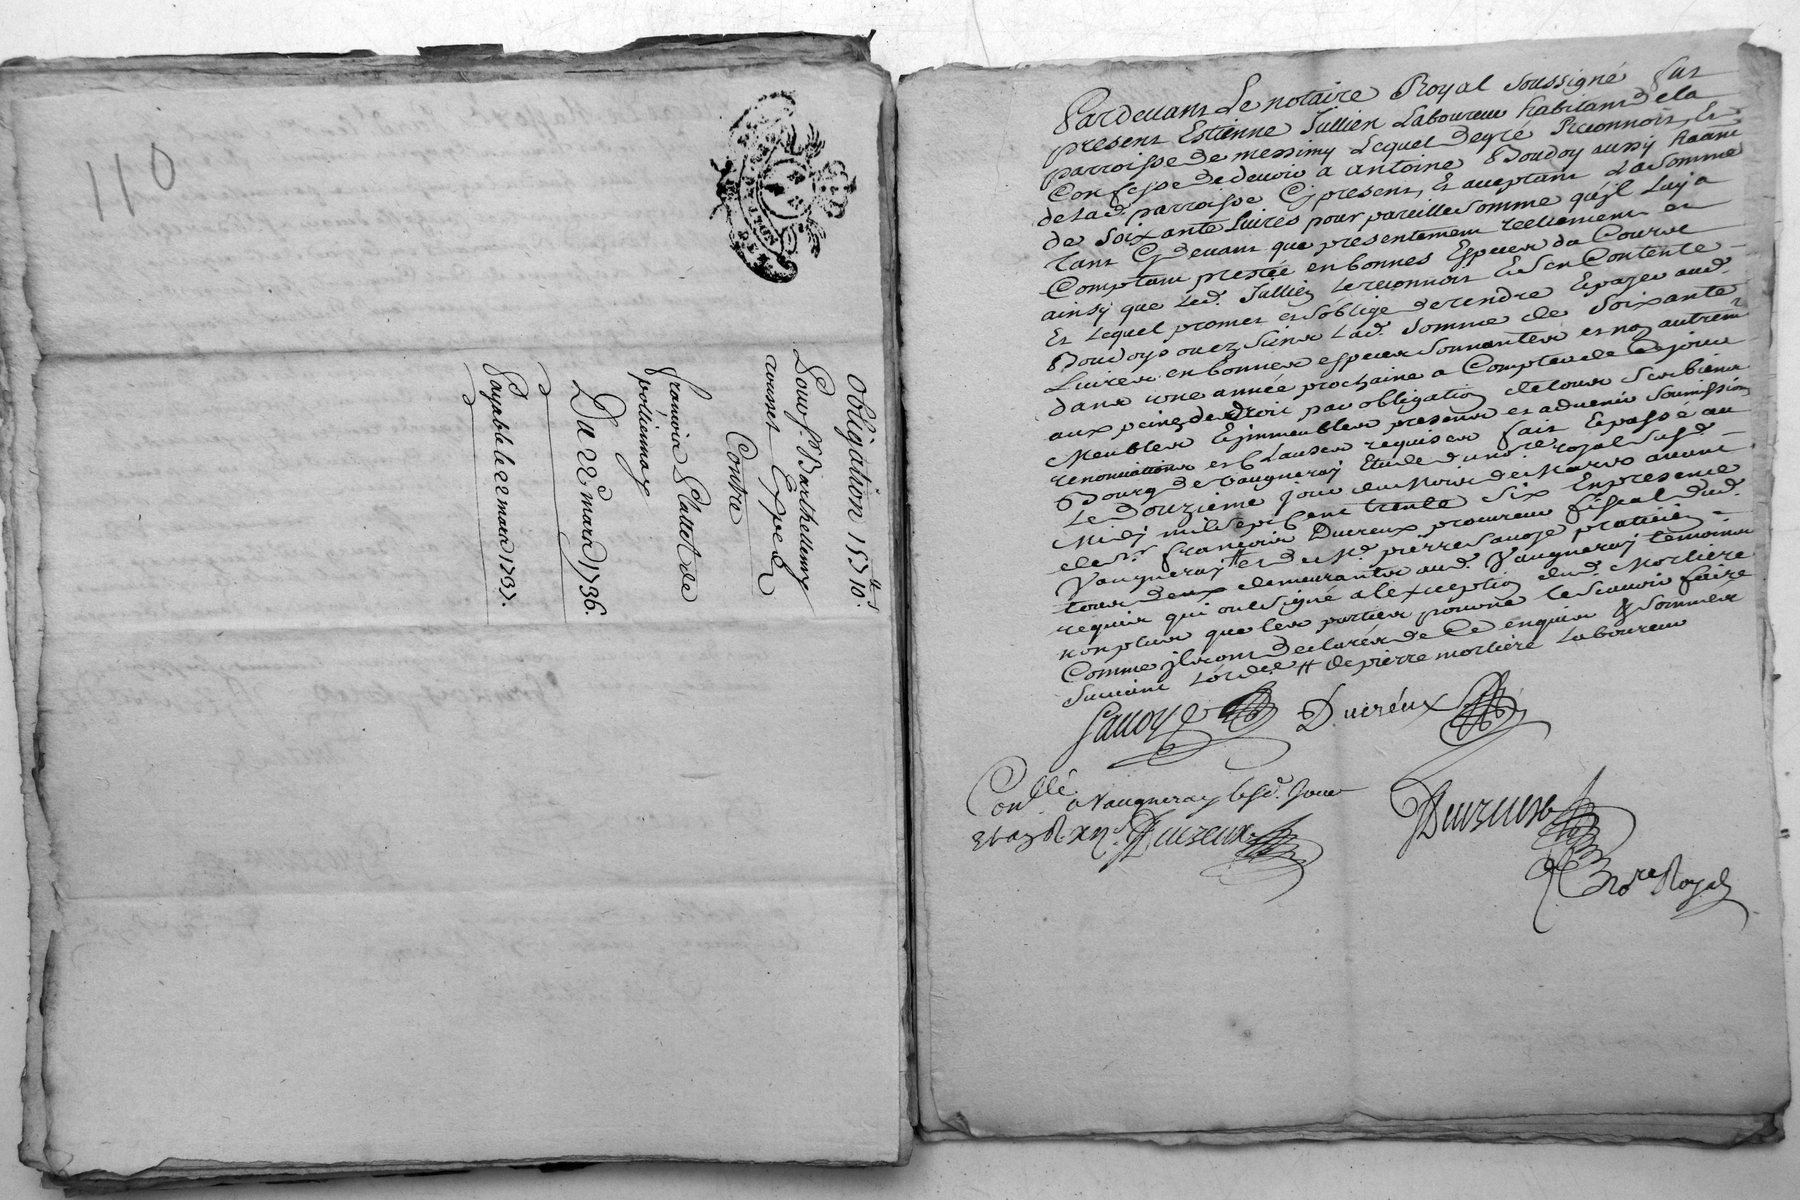 110
Obligation 15lt 10s.
Pour Sr. Barthellemy
Contre
francois Plattet de
pollionnay
Du 22e mars 1736.
Payable le 22 mars 1737.
Pardevant Le notaire Royal soussigné fut
present Estienne Jullien Laboureur habitant de la
parroisse de messimy Lequel de gré Reconnoit Et
Confesse de devoir a antoine Boudoy aussy habitant
de lad. parroisse Cy present, Et acceptant La somme
de soixante Livres pour pareille somme qu'il Luy a
tant Cy devant que presentement reellement et
Comptant prestée en bonnes Especes du Cours
ainsy que Led. Jullien Le reconnoit Et s'en Contente
Et Lequel promet et s'oblige de rendre Et payer aud.
Boudoy ou ez siens Lad. somme de soixante
Livres en bonnes especes sonnantes et non autrement
dans une année prochaine a Compter de Ce jour
aux peines de droit par obligation de tous ses biens
Meubles Et immeubles presents et advenir soumissions
renonciations et Clauses requises fait Et passé au
Bourg de Vaugneray Etude du nore. royal susd.
Le Douzieme jour du Mois de Mars avant
Midy mil sept Cent trente six En presence
de sr. francois Ducreux procureur fiscal dud.
Vaugneray # et de Me. pierre Savoye praticien
tous deux demeurants aud. Vaugneray temoins
requis qui ont signé a l'exception dud. Morliere
non plus que les parties pour ne le scavoir faire
Comme ils ont declarés de Ce enquis & sommés
suivant L'ordce. # de pierre morliere Laboureur
Savoye Ducreux
Conllé a Vaugneray le sd. Jour
Ducreux
Ducreux
Nore Royal